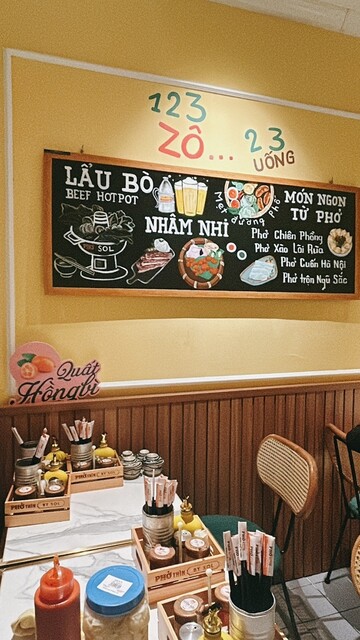 123
ZÔ...
2 3
UỐNG
LẨU BÒ
BEEF HOTPOT
PHỞ SOL
NHÂM NHI
Mẹt đường phố
MÓN NGON
TỪ PHỞ
Phở Chiên Phồng
Phở Xào Lòi Rửa
Phở Cuốn Hà Nội
Phở trộn Ngũ Sắc
Quất
Hồngbì
PHỞ THÌN
BY SOL
PHỞ THÌN
BY SOL
PHỞ THÌN
BY SOL